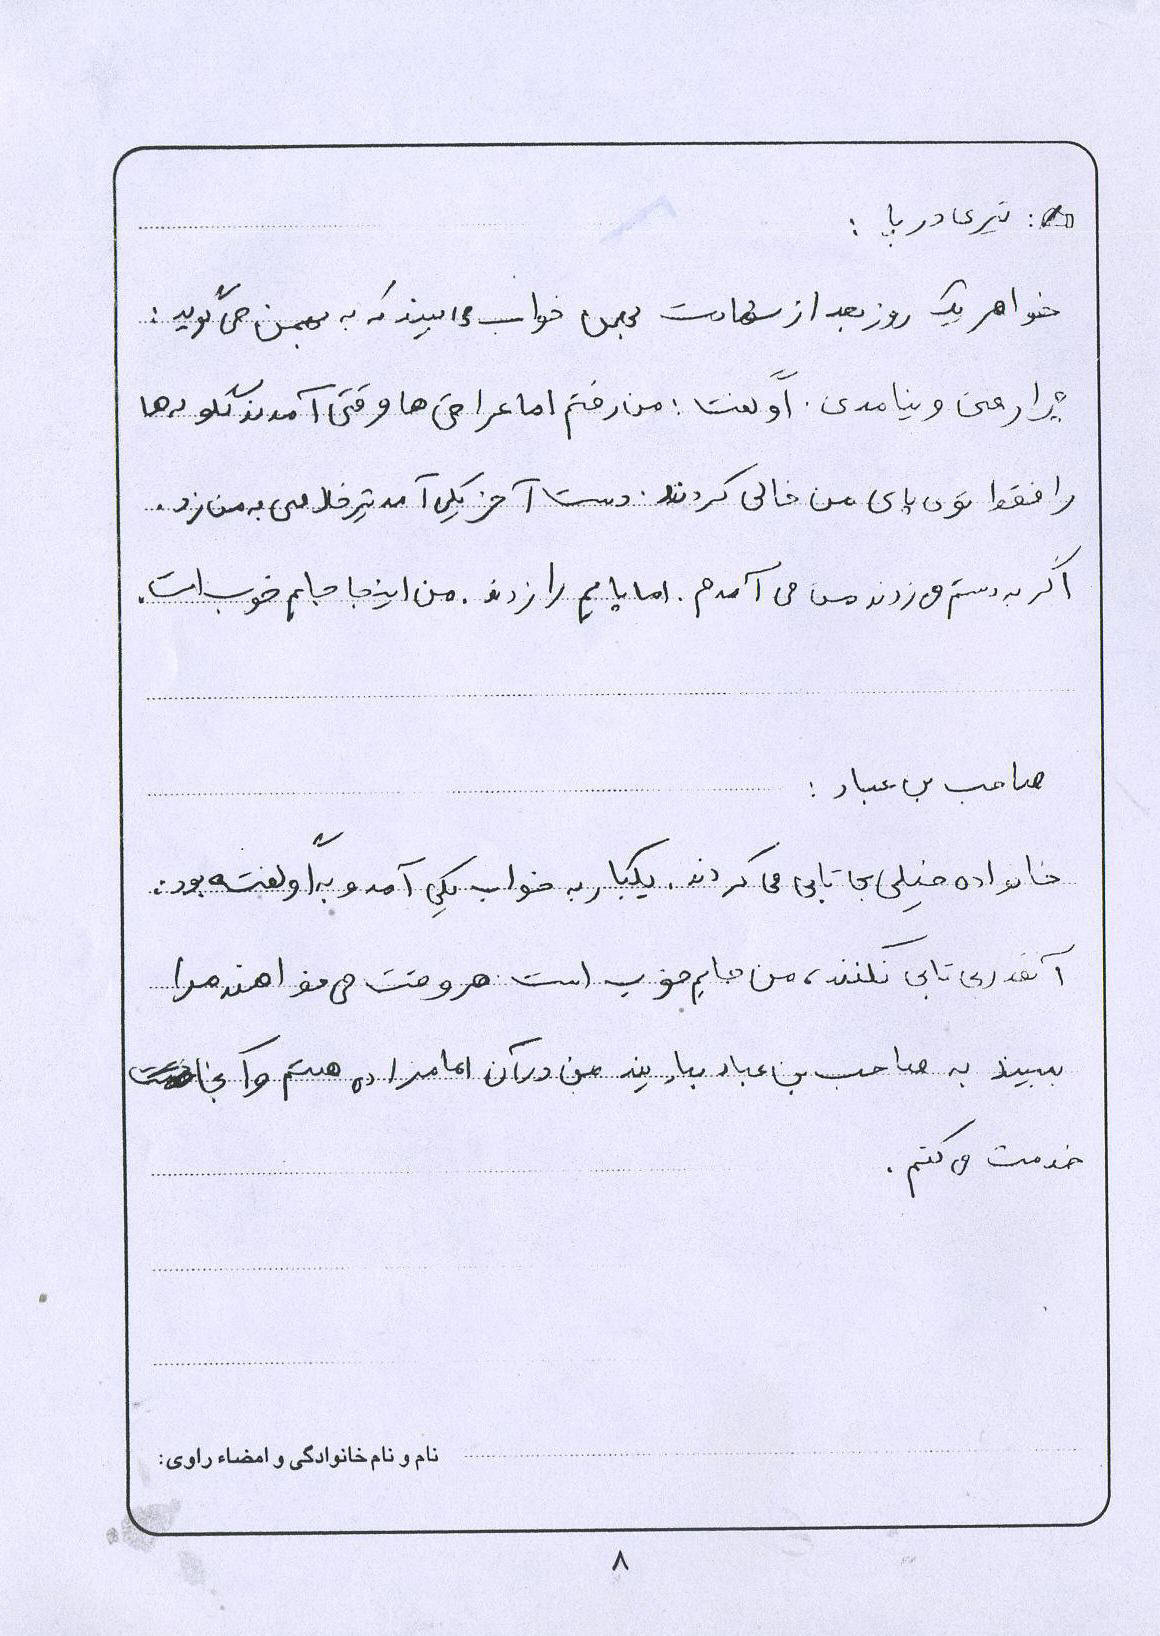 : تیری در پا :
خواهر یک روز بعد از شهادت بهمن خواب می بیند که به بهمن می گوید :
چرا رفتی و نیامدی . او گفت : من رفتم اما عراقی ها وقتی آمدند گلوله ها
را فقط توی پای من خالی کردند . دست آخر یکی آمد تیر خلاصی به من زد .
اگر به دستم می زدند من می آمدم . اما پایم را زدند . من اینجا جایم خوب است .
صاحب بن عباد :
خانواده خیلی بی تابی می کردند . یکبار به خواب یکی آمد و به او گفته بود :
آنقدر بی تابی نکنند ، من جایم خوب است هر وقت می خواهند مرا
ببینند به صاحب بن عباد بیایند من در آن امامزاده هستم و آنجا
خدمت می کنم .
نام و نام خانوادگی و امضاء راوی:
۸